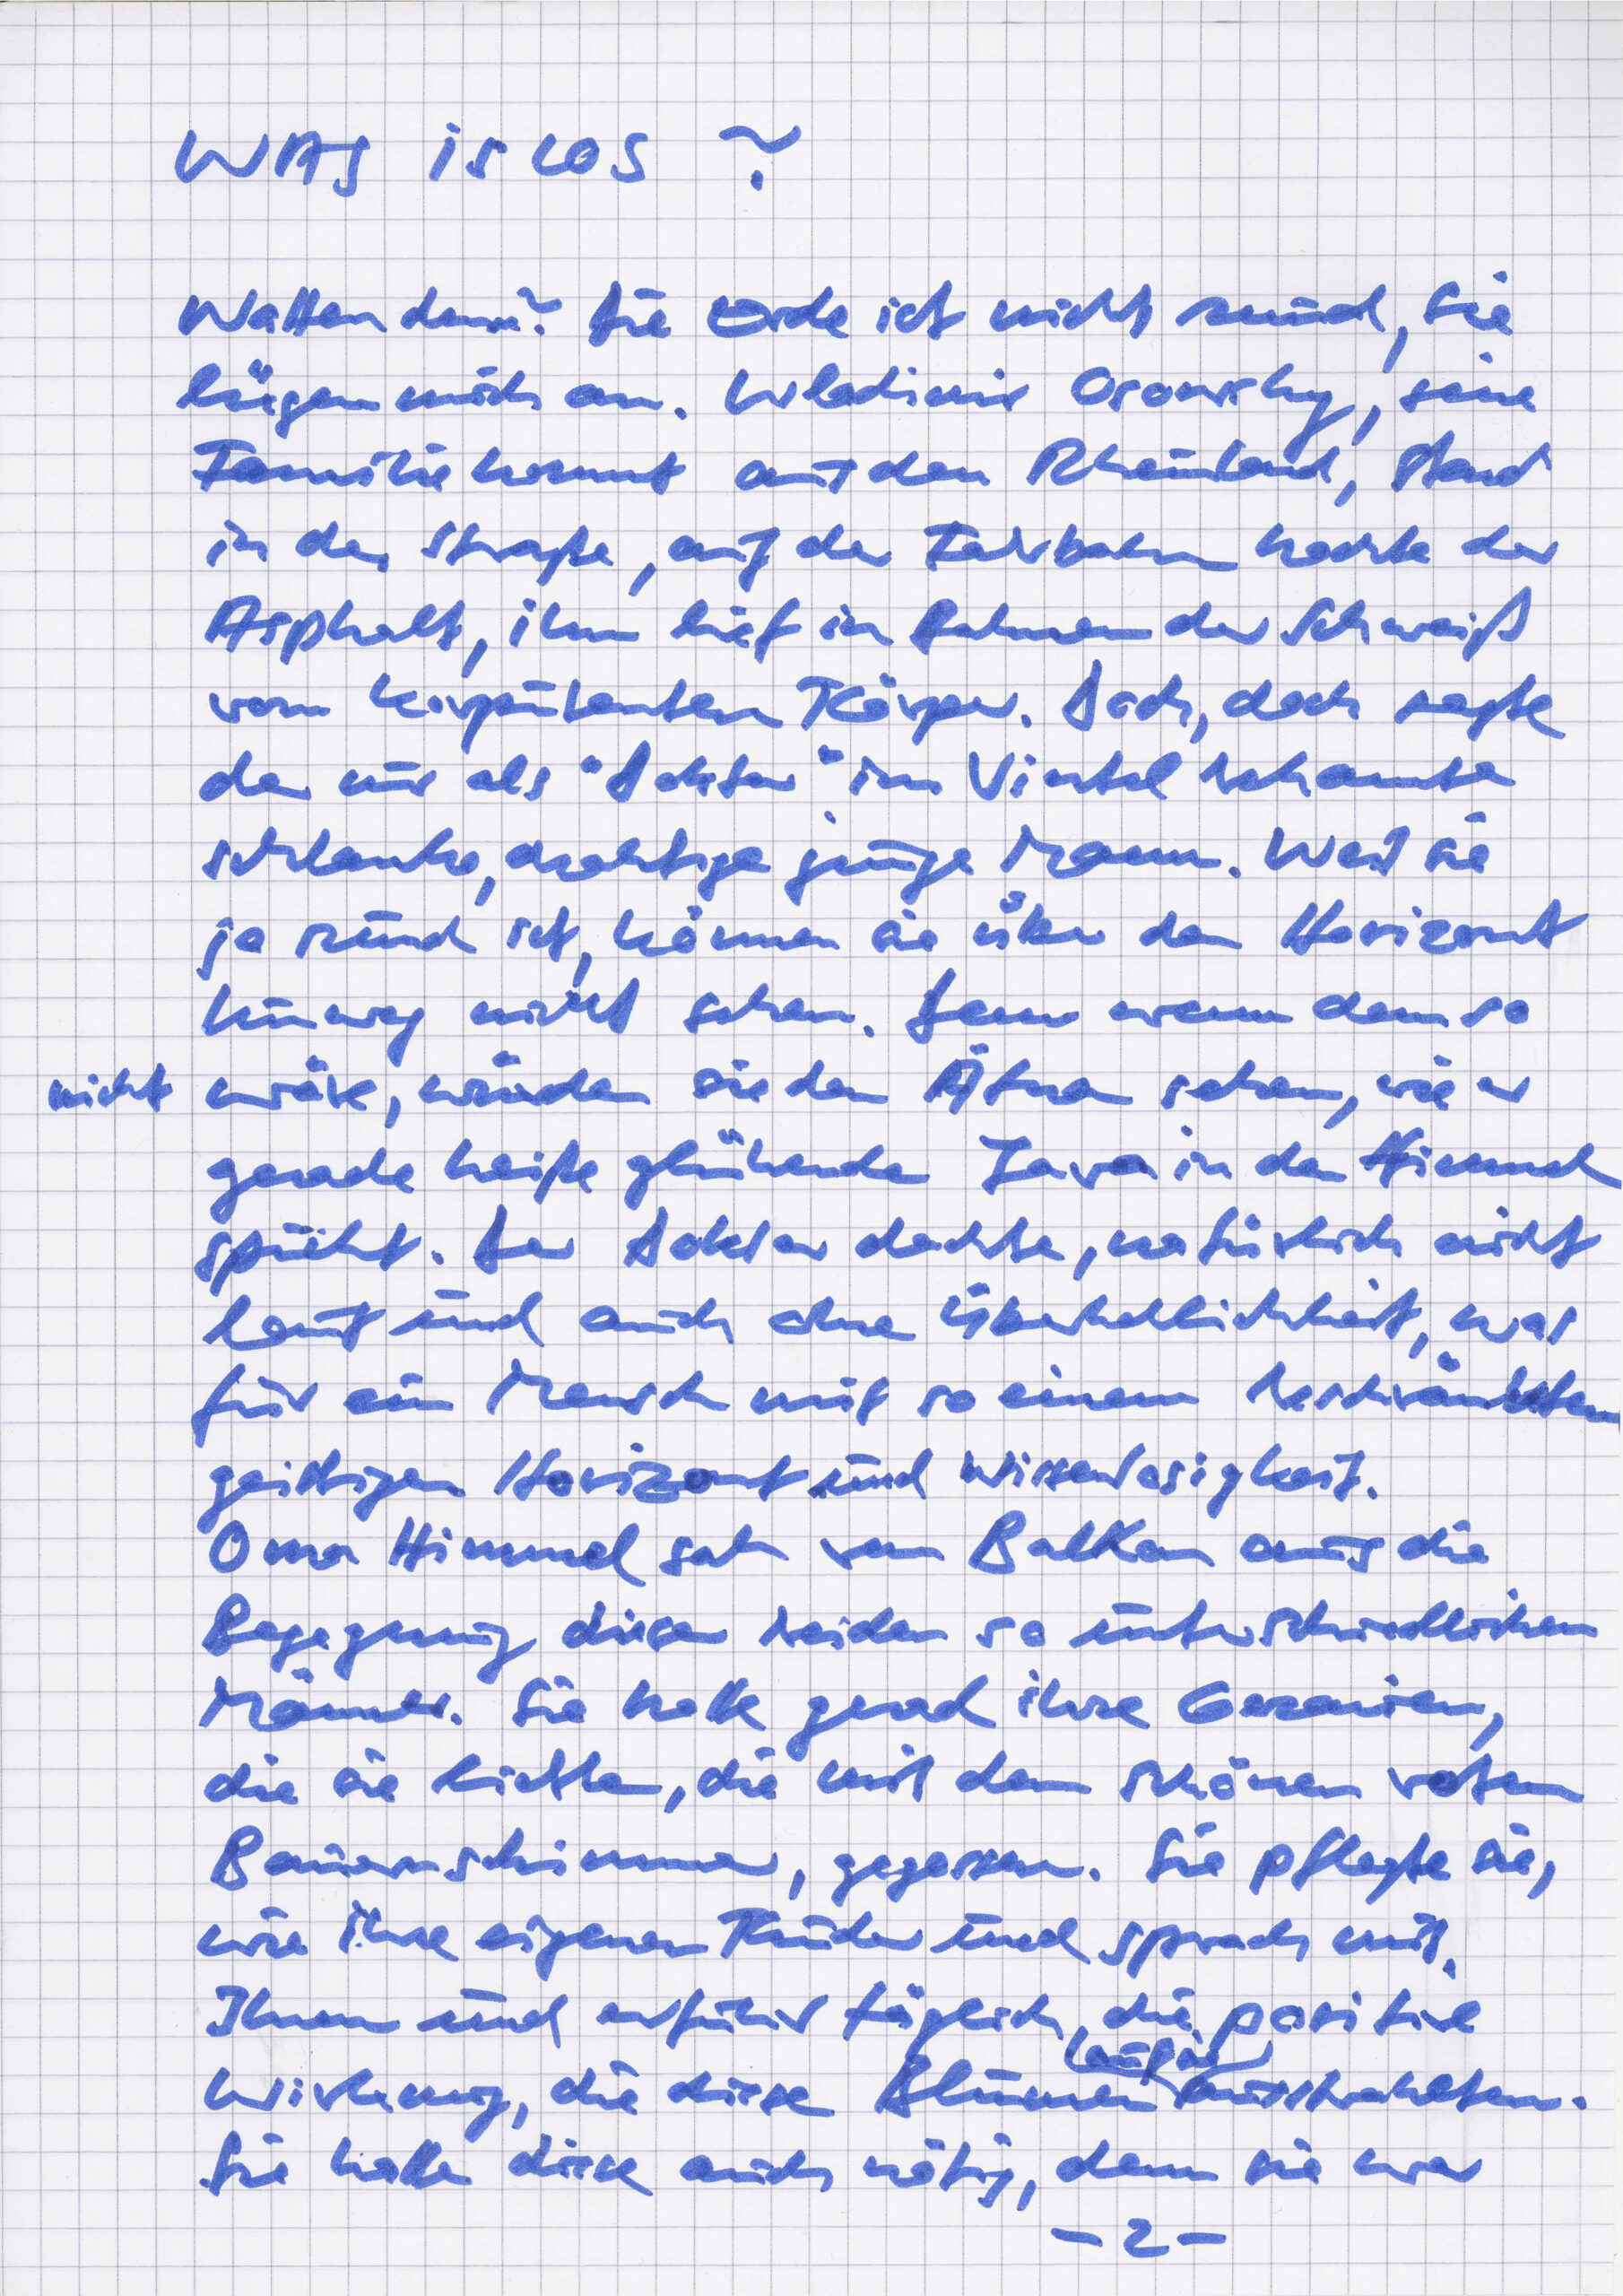 WAS is LOS ?
Watten denn? Die Erde ist nicht rund, Sie
lügen mich an. Wladimir Osowsky, seine
Familie kommt aus dem Rheinland, stand
in der Straße, auf der Fahrbahn kochte der
Asphalt, ihm lief in Bahnen der Schweiß
vom korpulenten Körper. Doch, doch sagte
der nur als "Doktor" im Viertel bekannte
schlanke, drahtige junge Mann. Weil sie
ja rund ist, können sie über den Horizont
hinweg nicht sehen. Denn wenn dem so
nicht wäre, würden sie den Ätna sehen, wie er
gerade heiße glühende Lava in den Himmel
spüht. Der Doktor dachte, natürlich nicht
laut und auch ohne Überheblichkeit, was
für ein Mensch mit so einem beschränkten
geistigen Horizont und Wissenlosigkeit.
Oma Himmel sah vom Balkon aus die
Begegnung dieser beiden so unterschiedlichen
Männer. Sie hatte gerad ihre Geranien,
die sie liebte, die mit dem schönen roten
Bauernschimmer, gegossen. Sie pflegte sie,
wie ihre eigenen Kinder und sprach mit
Ihnen und erfuhr täglich, die positive
Wirkung, die diese Blumen (auf sie) ausstrahlten.
Sie hatte diese auch nötig, denn sie war
- 2 -